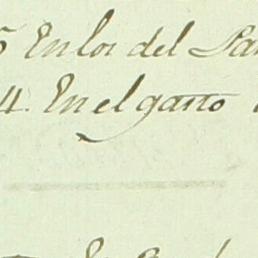 5 En los del
4. En el gasto